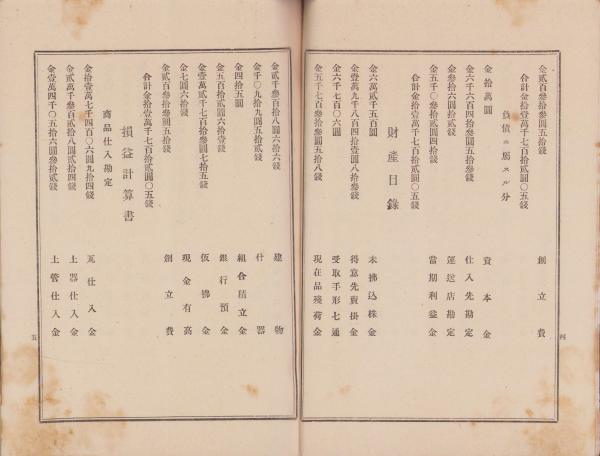 金貳百參拾參圓五拾錢 創立費
合計金拾壹萬千七百拾貳圓〇五錢
負債ニ屬スル分
金拾萬圓 資本金
金六千六百四拾參圓五拾錢 仕入先勘定
金參拾六圓拾貳錢 運送店勘定
金五千〇參拾貳圓四拾參錢 當期利益金
合計金拾壹萬千七百拾貳圓〇五錢
財產目錄
金六萬貳千五百圓 未拂込株金
金壹萬九千八百四拾壹圓八拾參錢 得意先賣掛金
金六千七百〇六圓 受取手形七通
金五千七百參拾參圓五拾八錢 現在品殘荷金
四
金貳千參百拾八圓六拾六錢 建物
金千〇九拾九圓五拾貳錢 什器
金四拾五圓 組合積立金
金五百拾貳圓六拾壹錢 銀行預金
金壹萬貳千七百拾參圓七拾五錢 仮拂金
金七圓六拾錢 現金有高
金貳百參拾參圓五拾錢 創立費
合計金拾壹萬千七百拾貳圓〇五錢
損益計算書
商品仕入勘定
金拾壹萬七千四百〇六圓九拾四錢 瓦仕入金
金貳萬千參百貳拾八圓貳拾四錢 土器仕入金
金壹萬四千〇五拾六圓參拾貳錢 土管仕入金
五